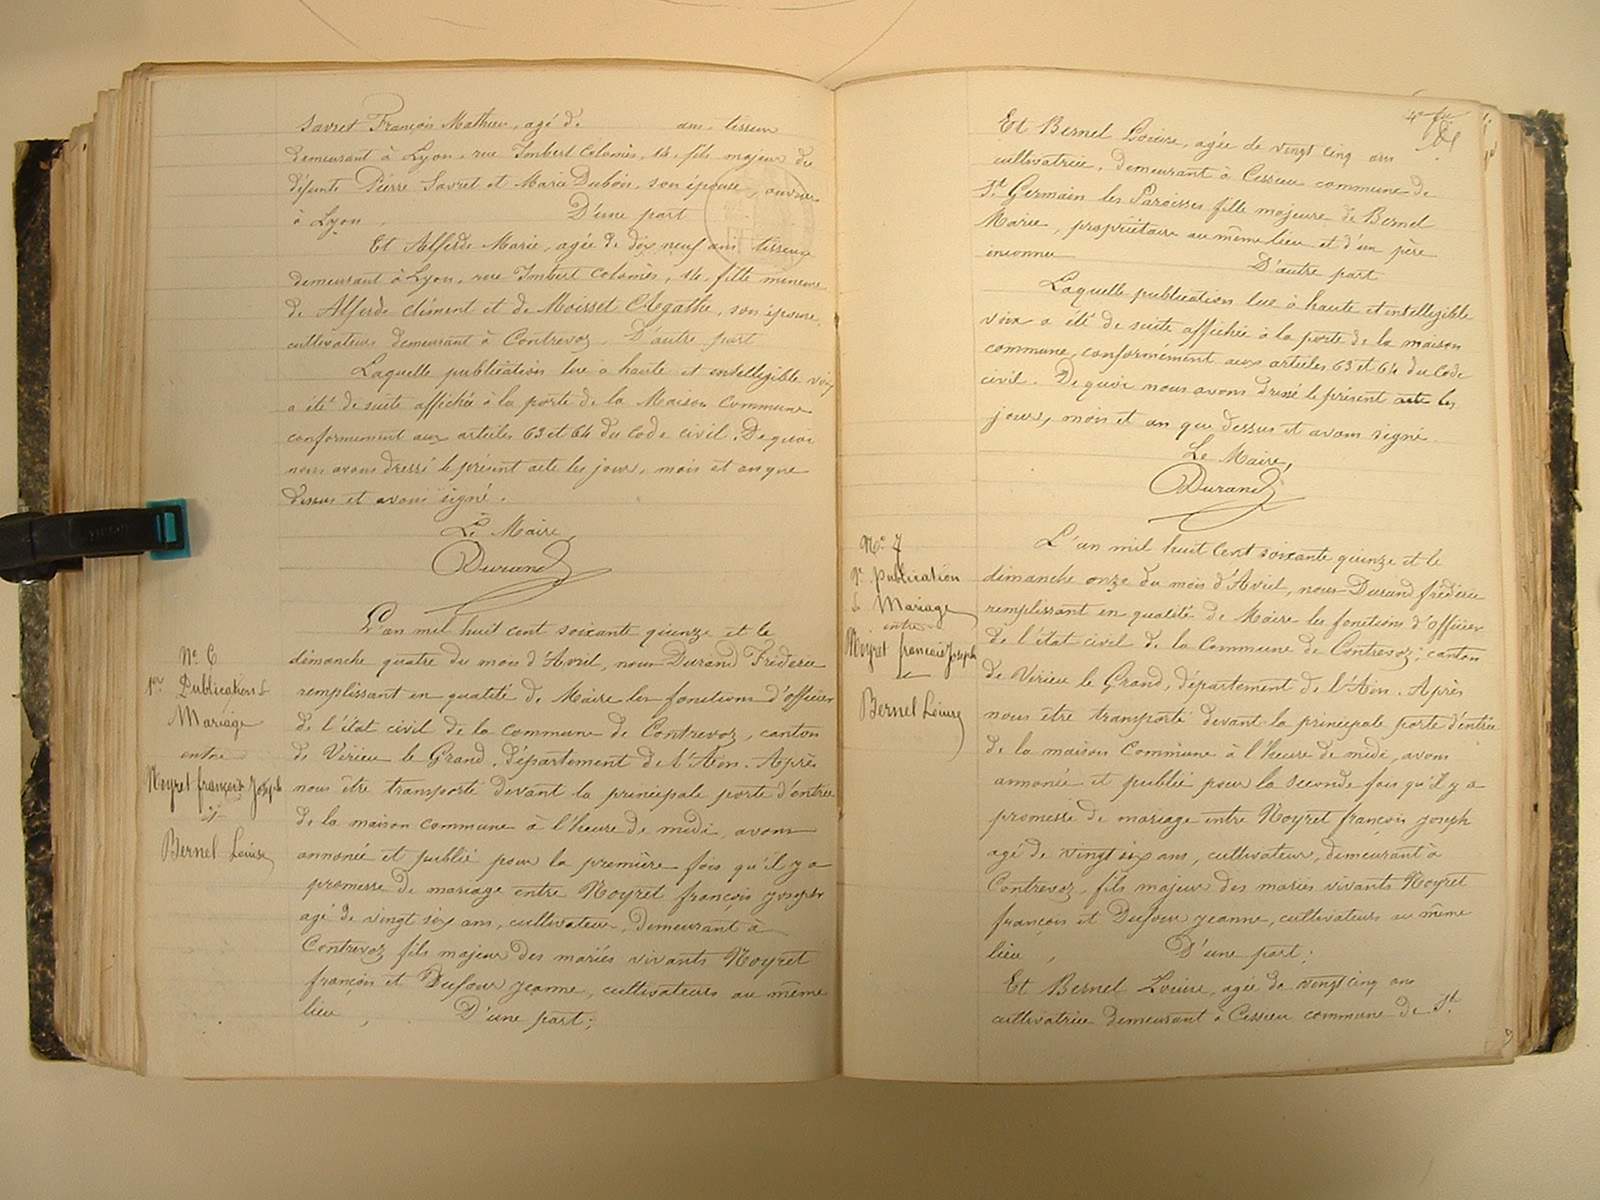 Savret François Mathieu, agé de ans, tisseur
demeurant à Lyon, rue Imbert Colomès, 14, fils majeur de
défunts Pierre Savret et Marie Dubois, son épouse, ouvrier
à Lyon, D'une part
Et Alferde Marie, agée de dix neuf ans, tisseuse
demeurant à Lyon, rue Imbert Colomès, 14, fille mineure
de Alferde Clément et de Moisset Agathe, son épouse,
cultivateurs demeurant à Contrevoz, D'autre part
Laquelle publication lue à haute et intellegible voix
a été de suite affichée à la porte de la Maison Commune
conformement aux articles 63 et 64 du Code civil. De quoi
nous avons dressé le présent acte les jour, mois et an que
dessus et avons signé.
Le Maire,
Durand
N° 6
1re Publication de
Mariage
entre
Noyret françois Joseph
et
Bernel Louise
L'an mil huit cent soixante quinze et le
dimanche quatre du mois d'Avril, nous Durand Fréderic
remplissant en qualité de Maire les fonctions d'officier
de l'état civil de la commune de Contrevoz, canton
de Virieu le Grand, département de l'Ain. Après
nous être transporté devant la principale porte d'entrée
de la maison commune à l'heure de midi, avons
annoncé et publié pour la première fois qu'il y a
promesse de mariage entre Noyret françois joseph
agé de vingt six ans, cultivateur, demeurant à
Contrevoz fils majeur des mariés vivants Noyret
françois et Dufour jeanne, cultivateurs au même
lieu, D'une part;
Et Bernel Louise, agée de vingt cinq ans
cultivatrice, demeurant à Cessieu commune de
St. Germain les Paroisses fille majeure de Bernel
Marie, propriétaire au même lieu et d'un père
inconnu D'autre part
Laquelle publication lue à haute et intellegible
voix a été de suite affichée à la porte de la maison
commune, conformément aux articles 63 et 64 du Code
civil. De quoi nous avons dressé le présent acte les
jour, mois et an que dessus et avons signé.
Le Maire,
Durand
N° 7
2e publication
de Mariage
entre
Noyret francois Joseph
et
Bernel Louise
L'an mil huit Cent soixante quinze et le
dimanche onze du mois d'Avril, nous Durand fréderic
remplissant en qualité de Maire les fonctions d'officier
de l'état civil de la Commune de Contrevoz, canton
de Virieu le Grand, département de l'Ain. Après
nous être transporté devant la principale porte d'entrée
de la maison Commune à l'heure de midi, avons
annoncé et publié pour la seconde fois qu'il y a
promesse de mariage entre Noyret françois joseph
agé de vingt six ans, cultivateur, demeurant à
Contrevoz, fils majeur des mariés vivants Noyret
françois et Dufour jeanne, cultivateurs au même
lieu, D'une part;
Et Bernel Louise, agée de vingt cinq ans
cultivatrice demeurant à Cessieu commune de St.